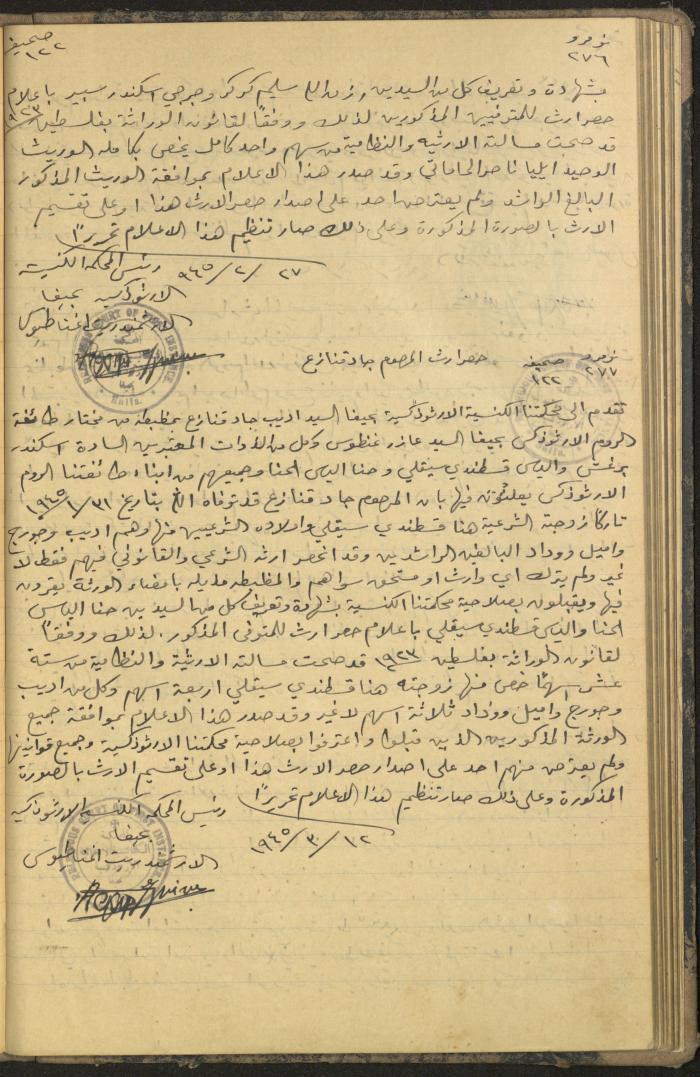 نومرو
٢٧٦
صحيفة
١٢٢
بشهادة وتعريف كل من السيدين رزق الله سليم كركر وجرجي اسكندر سبير باعلام
حصر ارث للمتوفيين المذكورين لذلك ووفقاً لقانون الوراثة بفلسطين ١٩٢٣
قد صحت مسالته الارثيه والنظامية من سهم واحد كامل يخص بكامله الوريث
الوحيد ايليا ناصر وقد صدر هذا الاعلام بموافقة الوريث المذكور
البالغ الراشد ولم يعترض احد على اصدار حصر الارث هذا او على تقسيم
الارث بالصورة المذكورة وعلى ذلك صار تنظيم هذا الاعلام تحريراً
٢٧ / ٢ / ٩٤٥ رئيس المحكمة الكنسية
الارثوذكسية بحيفا
الارشمندريت اغناطيوس
RELIGIOUS COURT OF FIRST INSTANCE
Haifa
نومرو ٢٧٧ صحيفة ١٢٢ حصر ارث المرحوم جاد قنازع
تقدم الى محكمتنا الكنسية الارثوذكسية بحيفا السيد اديب جاد قنازع بمظبطه من مختار طائفة
الروم الارثوذكس بحيفا السيد عازر غنطوس وكل من الذوات المعتبرين السادة اسكندر
برغش والياس قسطندي سيقلي وحنا الياس الحنا وجميعهم من ابناء طائفتنا الروم
الارثوذكس يعلنون فيها بان المرحوم جاد قنازع قد توفاه الله بتاريخ ٣١ / ١ / ١٩٤٥
تاركاً زوجته الشرعية هنا قسطندي سيقلي واولاده الشرعيين منها وهم اديب وجورج
واميل ووداد البالغين الراشدين وقد انحصر ارثه الشرعي والقانوني فيهم فقط لا
غير ولم يترك اي وارث او مستحق سواهم والمظبطه مذيله بامضاء الورثة يقرون
فيها ويقبلون بصلاحية محكمتنا الكنسية بشهادة وتعريف كل من السيدين حنا الياس
الحنا والياس قسطندي سيقلي باعلام حصر ارث للمتوفى المذكور. لذلك ووفقاً
لقانون الوراثة بفلسطين ١٩٢٣ قد صحت مسالته الارثية والنظامية من ستة
عشر سهماً خص منها زوجته هنا قسطندي سيقلي اربعة اسهم وكل من اديب
وجورج واميل ووداد ثلاثة اسهم لا غير وقد صدر هذا الاعلام بموافقة جميع
الورثة المذكورين الذين قبلوا واعترفوا بصلاحية محكمتنا الارثوذكسية وجميع قوانينها
ولم يعترض منهم احد على اصدار حصر الارث هذا او على تقسيم الارث بالصورة
المذكورة وعلى ذلك صار تنظيم هذا الاعلام تحريراً
١٢ / ٣ / ١٩٤٥ رئيس المحكمة الكنسية الارثوذكسية
بحيفا
الارشمندريت اغناطيوس